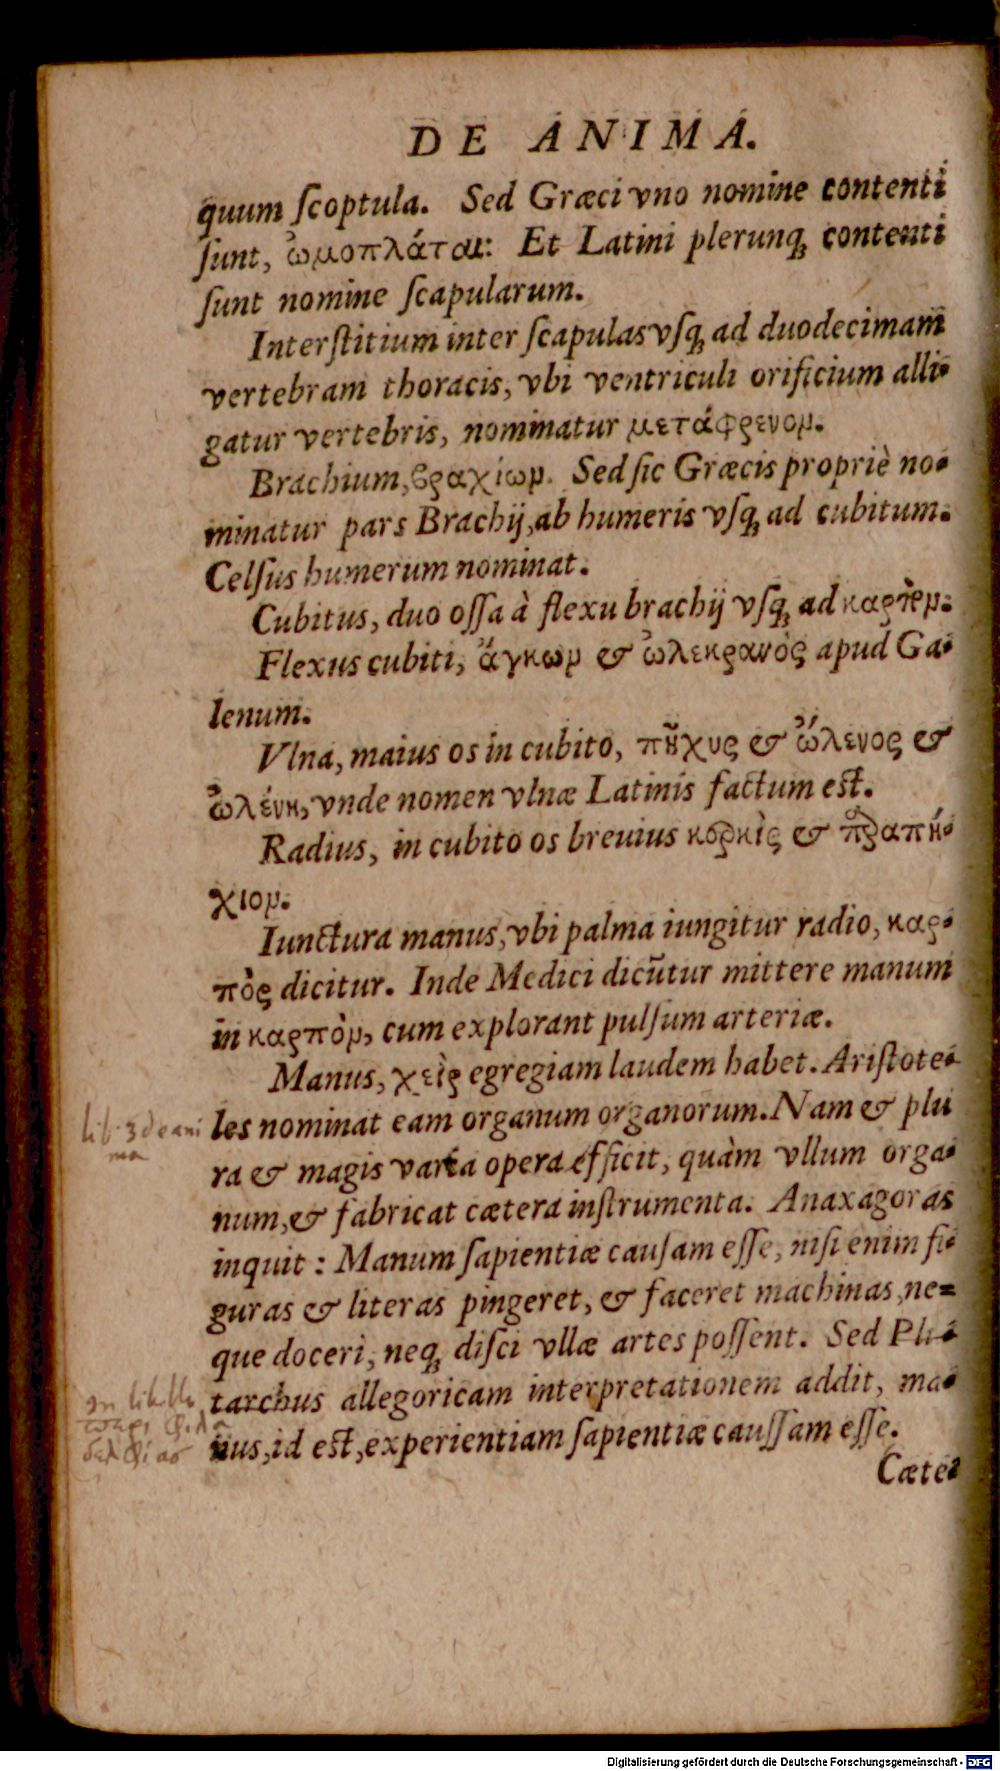 DE ANIMA.
quum ſcoptula. Sed Græci vno nomine contenti
ſunt, ὠμοπλάται: Et Latini plerunq; contenti
ſunt nomine ſcapularum.
Interſtitium inter ſcapulas vſq; ad duodecimam
vertebram thoracis, vbi ventriculi orificium alli-
gatur vertebris, nominatur μετάφρενομ.
Brachium, βραχίωμ. Sed ſic Græcis propriè no-
minatur pars Brachij, ab humeris vſq; ad cubitum.
Celſus humerum nominat.
Cubitus, duo oſſa à flexu brachij vſq; ad
Flexus cubiti, ἄγκωμ & ὠλεκρανὸς apud Ga-
lenum.
Vlna, maius os in cubito, πῆχυς & ὤλενος &
ὠλένη, vnde nomen vlnæ Latinis factum est.
Radius, in cubito os breuius κερκὶς & παραπή-
χιομ.
Iunctura manus, vbi palma iungitur radio, καρ-
πὸς dicitur. Inde Medici dicũtur mittere manum
in καρπὸμ, cum explorant pulſum arteriæ.
Manus, χεὶρ egregiam laudem habet. Ariſtote-
lib. 3 de ani
ma
les nominat eam organum organorum. Nam & plu
ra & magis varia opera efficit, quàm vllum orga-
num, & fabricat cætera inſtrumenta. Anaxagoras
inquit : Manum ſapientiæ cauſam eſſe, niſi enim fi-
guras & literas pingeret, & faceret machinas, ne-
que doceri, neq; diſci vllæ artes poſſent. Sed Plu-
in libello
tarchus allegoricam interpretationem addit, ma-
nus, id est, experientiam ſapientiæ cauſſam eſſe.
Cæte-
Digitalisierung gefördert durch die Deutsche Forschungsgemeinschaft - DFG